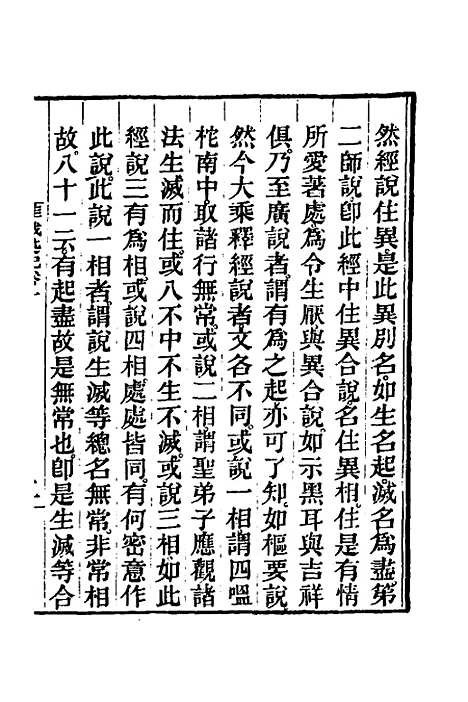 然經說住異是此異別名如生名起滅名為盡第
二師說卽此經中住異合說名住異相住是有情
所愛著處為令生厭與異合說如示黑耳與吉祥
俱乃至廣說者謂有為之起亦可了知如樞要說
然今大乘釋經說者文各不同或說一相謂四嗢
柁南中取諸行無常或說二相謂聖弟子應觀諸
法生滅而住或八不中不生不滅或說三相如此
經說三有為相或說四相處處皆同有何密意作
此說此說一相者謂說生滅等總名無常非常相
故八十一云有起盡故是無常也卽是生滅等合